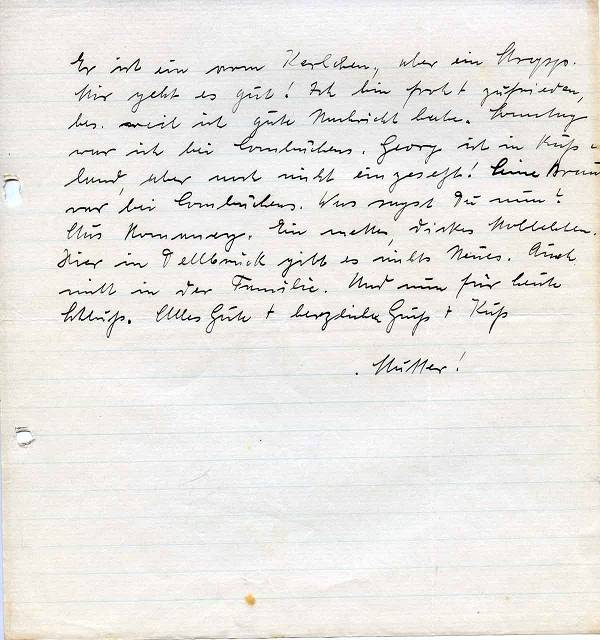 Er ist ein Kerlchen, aber ein
Mir geht es gut! Ich bin froh + zufrieden,
bes. weil ich gute Nachricht habe. Sonntag
war ich bei. Georg ist in Ruß-
land, aber noch nicht eingesetzt! Seine Braut
war bei. Was sagst Du nun?
Aus. Ein nettes, dickes
Hier in Dellbrück gibt es nichts Neues. Auch
nicht in der Familie. Und nun für heute
Schluß. Alles Gute + herzliche Grüß + Kuß
Mutter!